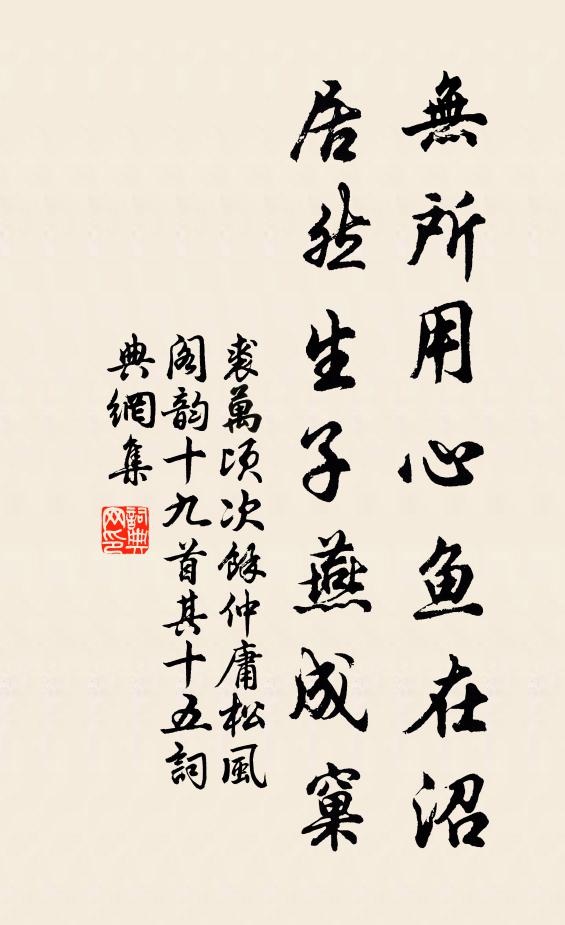 無所用心鱼在沼
居然生子燕成窠
裘萬頃次餘仲庸松風
阁韵十九首其十五詞
典網集
詞典網印